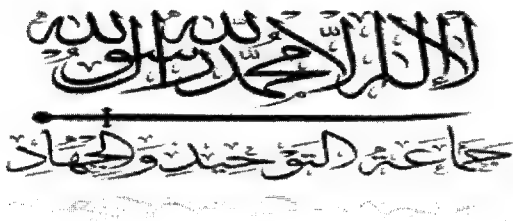 لا إله إلا الله محمد رسول الله
جماعة التوحيد والجهاد